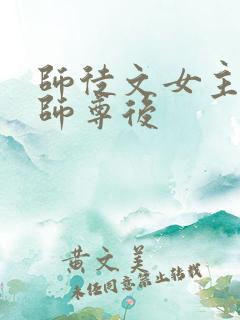 師徒文女主
師尊後
黄文美
未经同意禁止转载